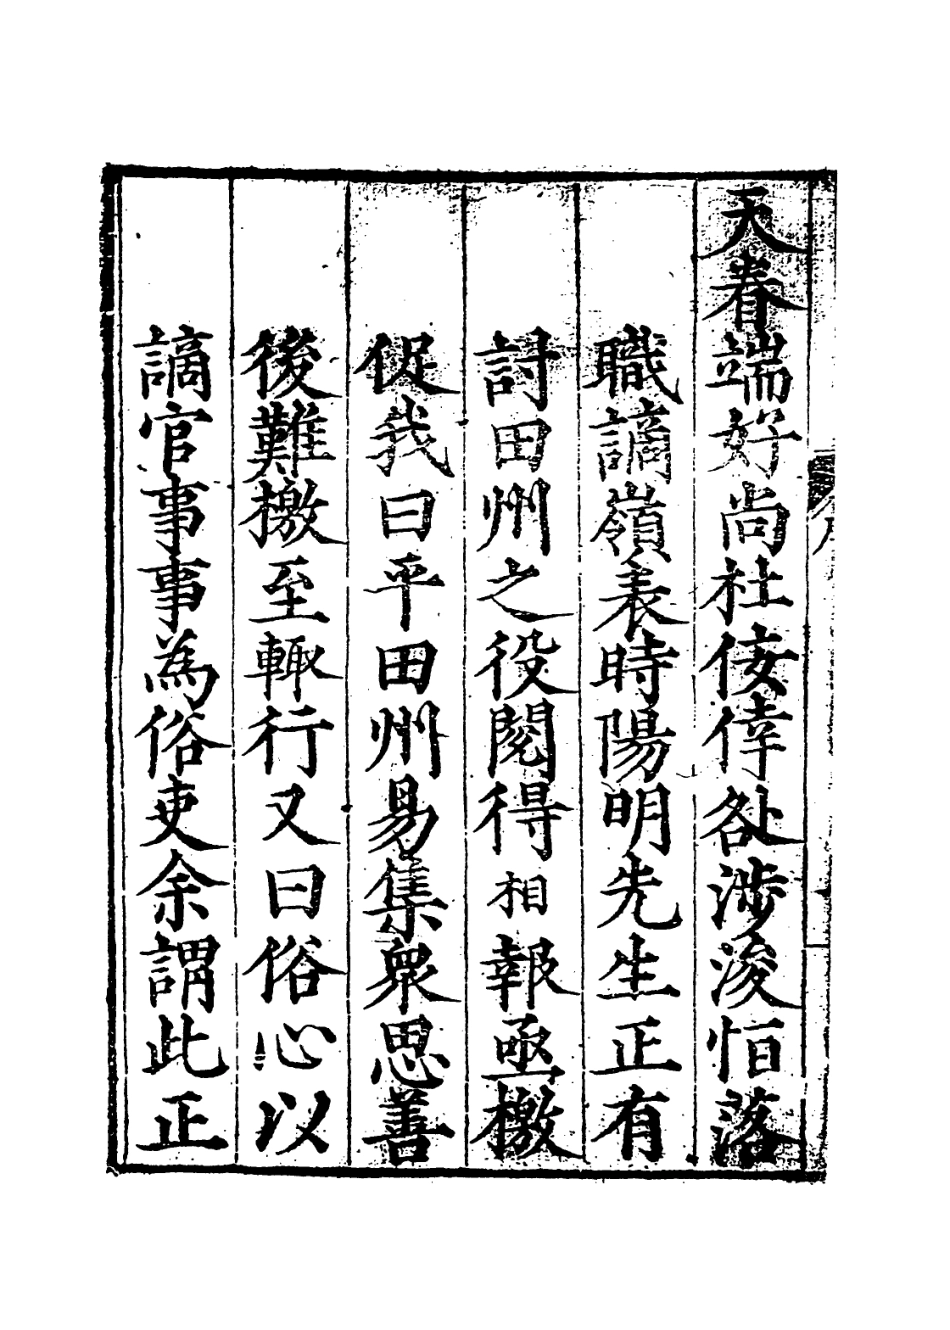 天眷端好尚杜佞倖咎涉浚恒落
職謫嶺表時陽明先生正有
討田州之役閱得相報亟檄
促我曰平田州易集衆思善
後難檄至輙行又曰俗心以
謫官事事為俗吏余謂此正